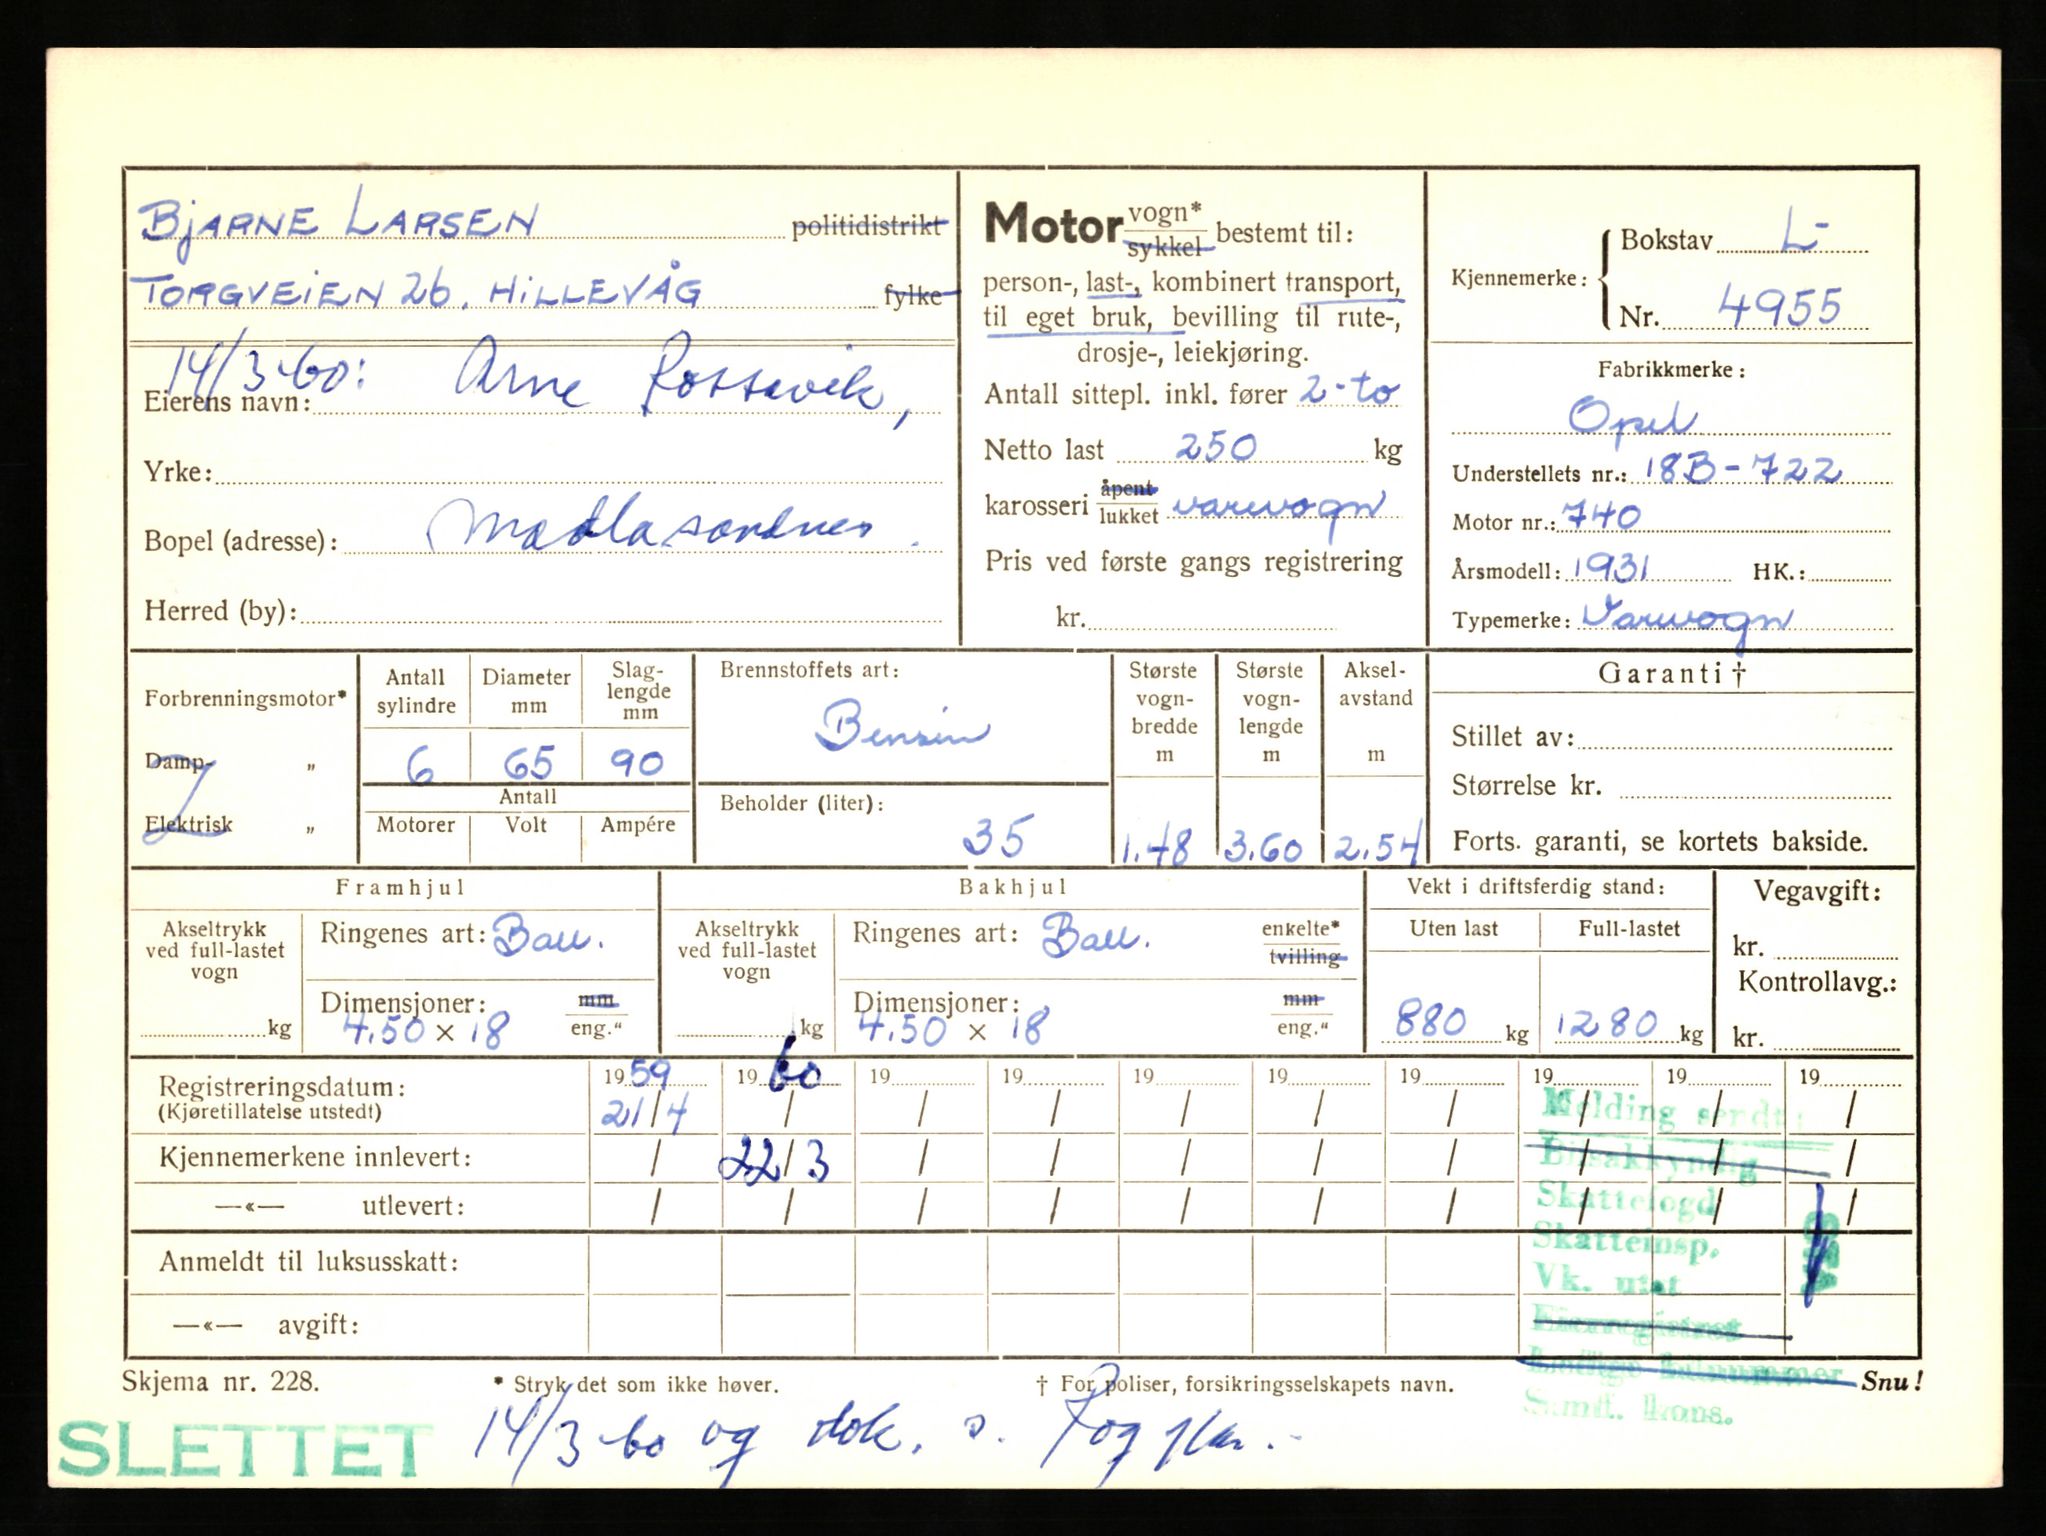 BJARNE LARSEN politidistrikt
TORGVEIEN 26, HILLEVÅG fylke
14/3-60: Arne Rossavik,
Eierens navn:
Yrke:
Bopel (adresse): Madlasandnes.
Herred (by):
Motor vogn* sykkel bestemt til:
person-, last-, kombinert transport,
til eget bruk, bevilling til rute-,
drosje-, leiekjøring.
Antall sittepl. inkl. fører 2-to
Netto last 250 kg
karosseri åpent lukket varevogn
Pris ved første gangs registrering
kr.
Kjennemerke: Bokstav L-
Nr. 4955
Fabrikkmerke:
Opel
Understellets nr.: 18B-722
Motor nr.: 740
Årsmodell: 1931 HK.:
Typemerke: Varevogn
Forbrenningsmotor*
Damp- „
Elektrisk „
Antall sylindre 6
Diameter mm 65
Slag-lengde mm 90
Antall
Motorer Volt Ampére
Brennstoffets art:
Bensin
Beholder (liter):
35
Største vogn-bredde m 1.48
Største vogn-lengde m 3.60
Aksel-avstand m 2.54
Garanti †
Stillet av:
Størrelse kr.
Forts. garanti, se kortets bakside.
Framhjul
Akseltrykk ved full-lastet vogn kg
Ringenes art: Ball.
Dimensjoner: mm eng."
4.50 × 18
Bakhjul
Akseltrykk ved full-lastet vogn kg
Ringenes art: Ball. enkelte* tvilling
Dimensjoner: mm eng."
4.50 × 18
Vekt i driftsferdig stand:
Uten last Full-lastet
880 kg 1280 kg
Vegavgift:
kr.
Kontrollavg.:
kr.
Registreringsdatum: 1959 1960 19 19 19 19 19 19 19 19
(Kjøretillatelse utstedt) 21/4 / / / / / / / / /
Kjennemerkene innlevert: / 22/3 / / / / / / / /
—«— utlevert: / / / / / / / / / /
Anmeldt til luksusskatt:
—«— avgift:
Melding sendt:
Bilsakkyndig
Skattefogd
Skatteinsp.
Vk. utst
Eierregistret
Skjema nr. 228.
* Stryk det som ikke høver.
† For poliser, forsikringsselskapets navn.
Snu!
SLETTET
14/3-60 og dok. s.